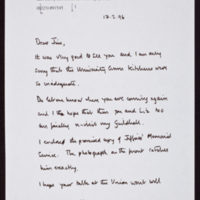 17.2.96
Dear Jim,
It was very good to see you and I am very
sorry that the University Arms kitchens were
so inadequate.
Do let me know when you are coming again
and I do hope that then you and Liz
can possibly re-visit my Guildhall.
I enclosed the promised copy of Memorial
Service. The photograph on the front catches
him exactly.
I hope your talks at the Union went well